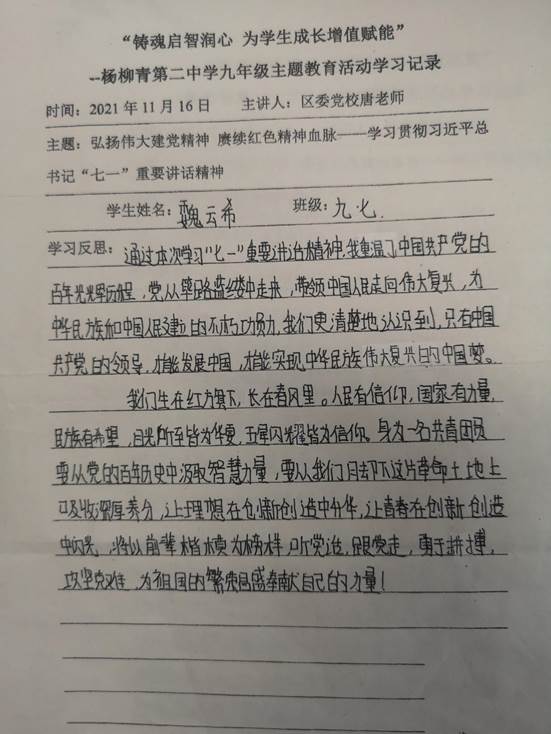 “铸魂启智润心 为学生成长增值赋能”
--杨柳青第二中学九年级主题教育活动学习记录
时间：2021年11月16日 主讲人：区委党校唐老师
主题：弘扬伟大建党精神 赓续红色精神血脉——学习贯彻习近平总
书记“七一”重要讲话精神
学生姓名：魏云希 班级：九.七.
学习反思：通过本次学习“七一”重要讲话精神，我重温了中国共产党的
百年光辉历程，党从筚路蓝缕中走来，带领中国人民走向伟大复兴，为
中华民族和中国人民建立的不朽功勋，我们更清楚地认识到，只有中国
共产党的领导，才能发展中国，才能实现中华民族伟大复兴的中国梦。
我们生在红旗下，长在春风里。人民有信仰，国家有力量，
民族有希望，目光所至皆为华夏，五星闪耀皆为信仰。身为一名共青团员
要从党的百年历史中汲取智慧力量，要从我们日脚下这片革命土地上
吸收深厚养分，让理想在创新创造中升华，让青春在创新创造
中闪光，将以前辈楷模为榜样，听党治，跟党走，勇于拼搏，
攻坚克难，为祖国的繁荣昌盛奉献自己的力量！